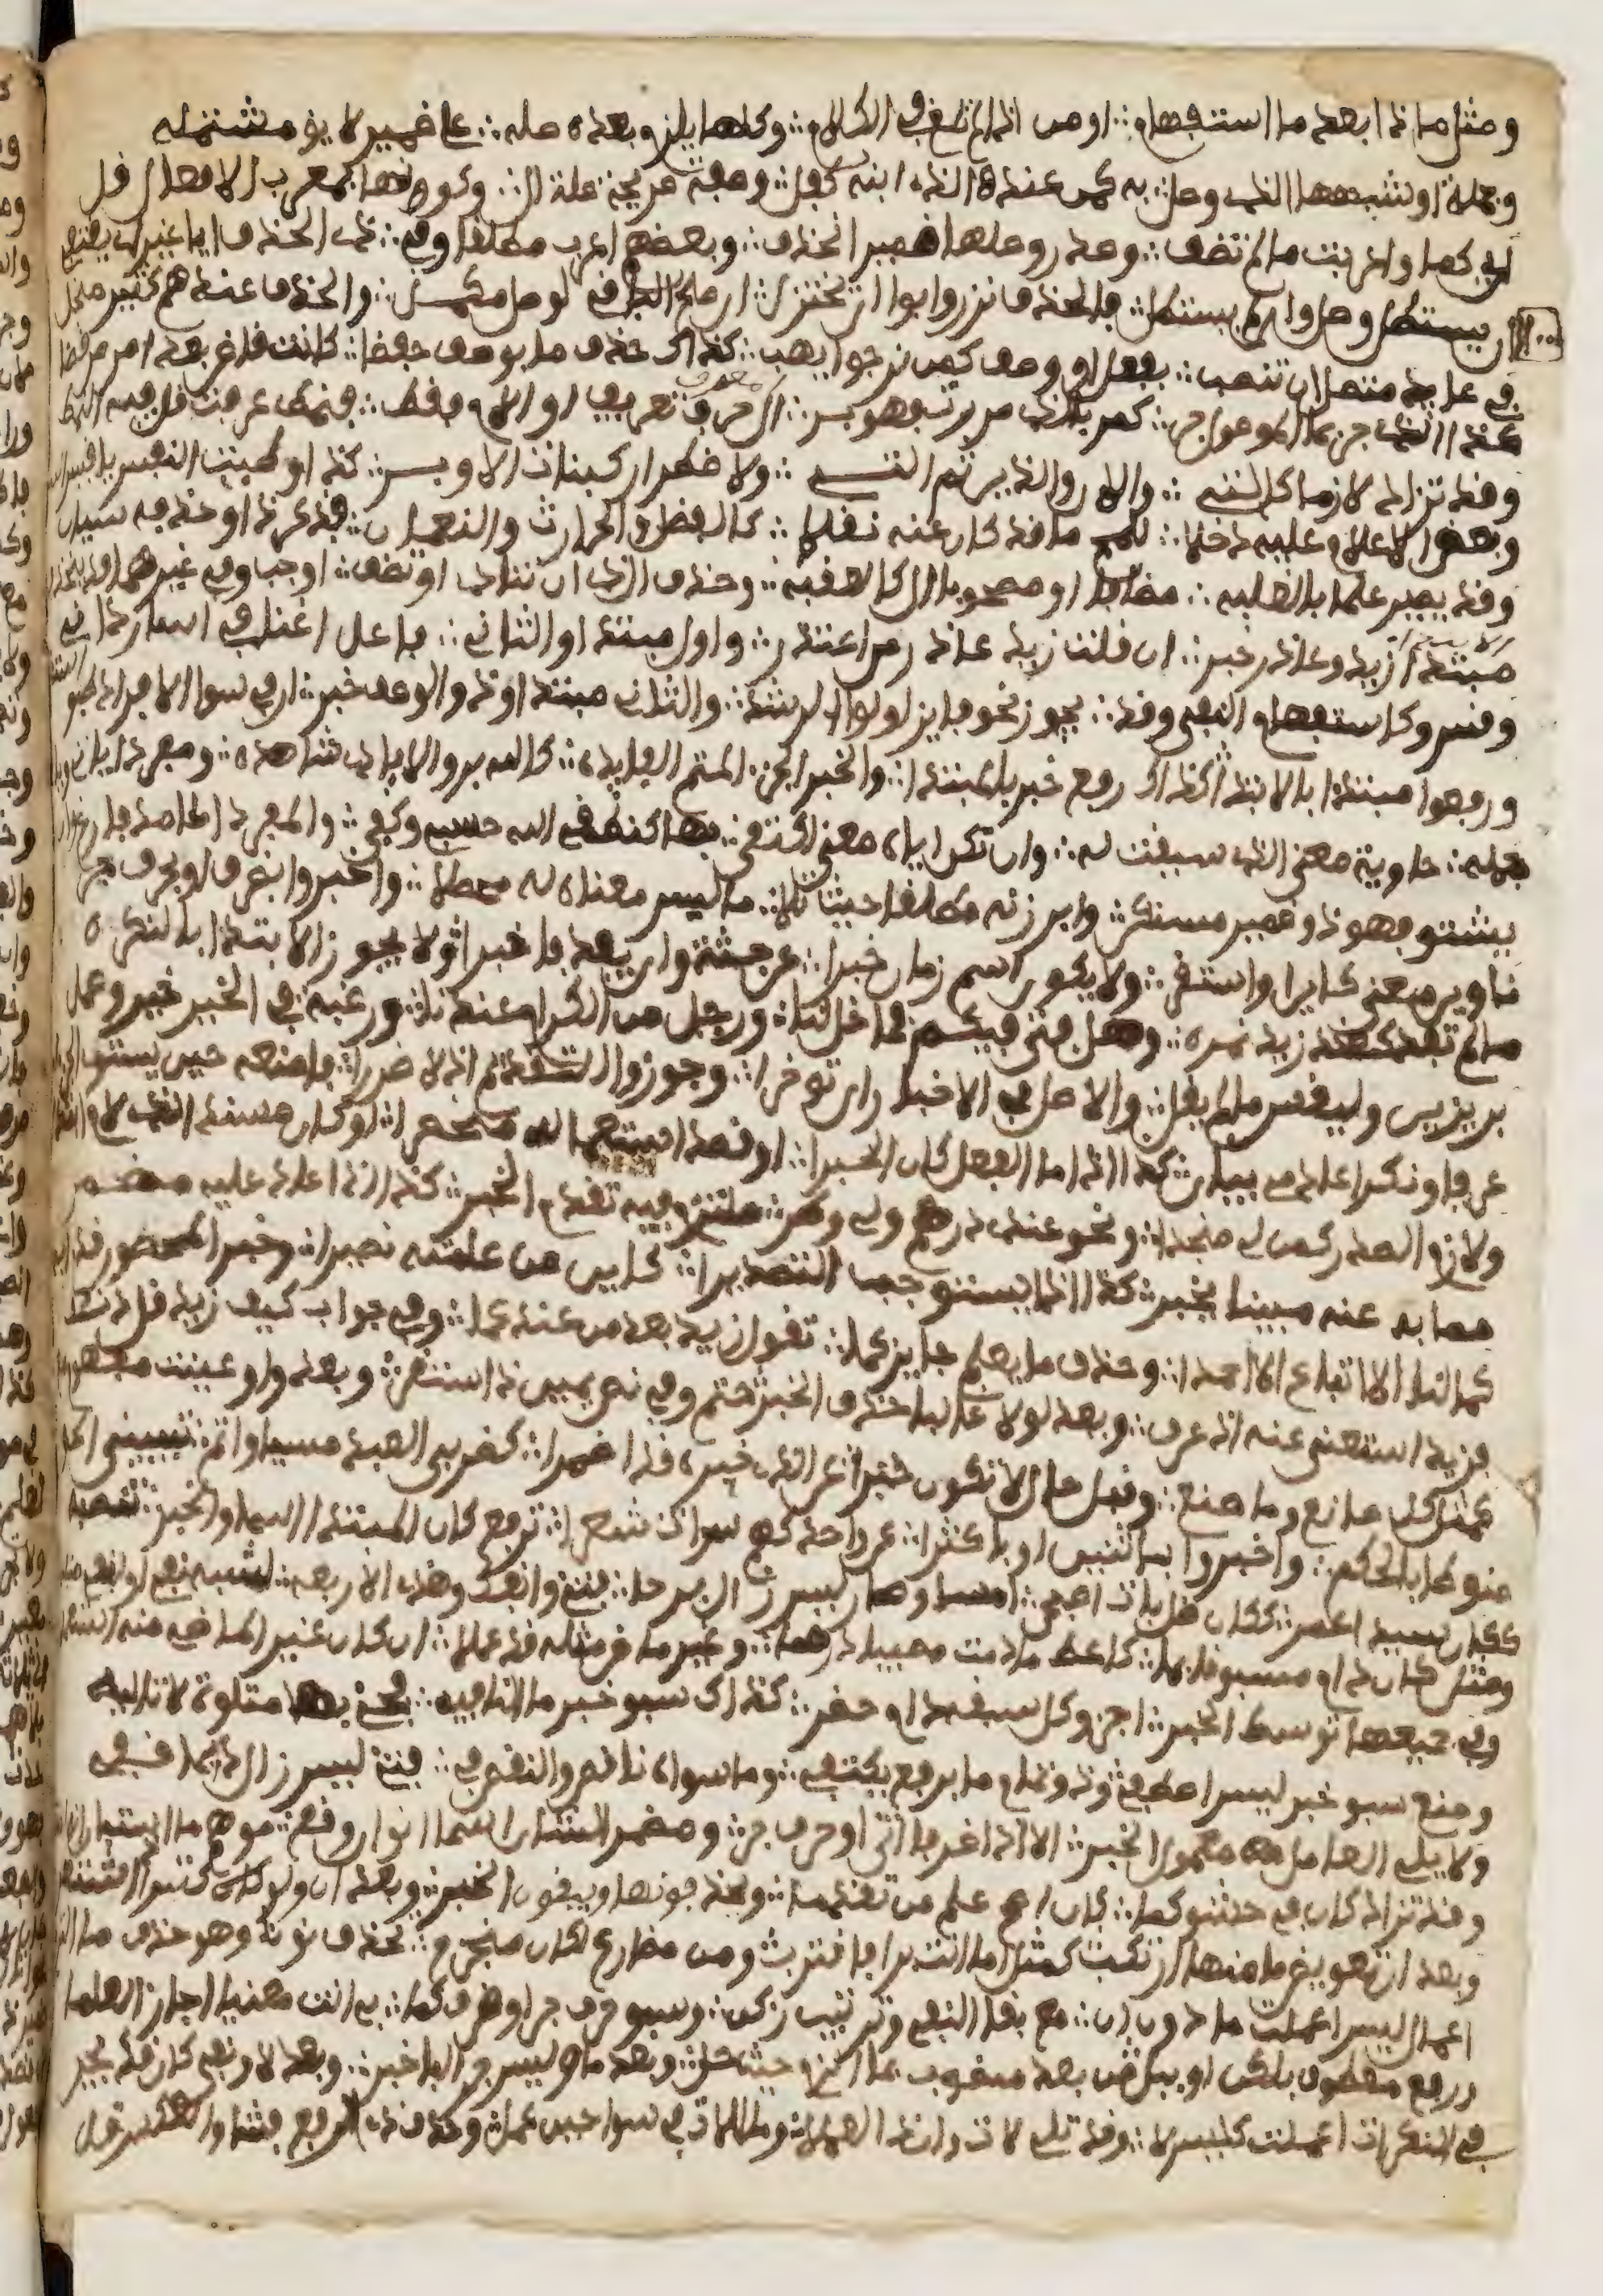 ومثل ما ذا بعد ما استفهام ∴ او من اذا لم تلغ في الكلام ∴ وكلها يلزم بعده صله ∴ على ضمير لايق مشتمله
وجملة او شبهها الذي وصل ∴ به كمن عندي الذي ابنه كفل ∴ وصفة صريحة صلة ال ∴ وكونها بمعرب الافعال قل
اي كما واعربت ما لم تضف ∴ وصدر وصلها ضمير انحذف ∴ وبعضهم اعرب مطلقا وفي ∴ ذا الحذف ايا غير اي يقتفي
ان يستطل وصل وان لم يستطل ∴ فالحذف نزر وابوا ان يختزل ∴ ان صلح الباقي لوصل مكمل ∴ والحذف عندهم كثير منجل
في عايد متصل ان انتصب ∴ بفعل او وصف كمن نرجوا يهب ∴ كذاك حذف ما بوصف خفضا ∴ كانت قاض بعد امر من قضا
كذا الذي جر بما الموصول جر ∴ كمر بالذي مررت فهو بر ∴ ال حرف تعريف او اللام فقط ∴ فنمط عرفت قل فيه النمط
وقد تزاد لازما كاللات ∴ والان والذين ثم اللات ∴ ولاضطرار كبنات الاوبر ∴ كذا وطبت النفس يا قيس
وبعض الاعلام عليه دخلا ∴ للمح ما قد كان عنه نقلا ∴ كالفضل والحارث والنعمان ∴ فذكر ذا وحذفه سيان
وقد يصير علما بالغلبه ∴ مضاف او مصحوب ال كالعقبه ∴ وحذف ال ذي ان تناد او تضف ∴ اوجب وفي غيرهما قد تنحذف
مبتدا زيد وعاذر خبر ∴ ان قلت زيد عاذر من اعتذر ∴ واول مبتدا والثاني ∴ فاعل اغنا في اسار ذان
وقس وكاستفهام النفي وقد ∴ يجوز نحو فايز اولوا الرشد ∴ والثان مبتدا وذا الوصف خبر ∴ ان في سوا الافراد طبقا استقر
ورفعوا مبتدا بالابتدا ∴ كذاك رفع خبر بالمبتدا ∴ والخبر الجزء المتم الفايده ∴ كالله بر والايادي شاهده ∴ ومفردا ياتي
جمله ∴ حاوية معنى الذي سيقت له ∴ وان تكن اياه معنى اكتفى ∴ بها كنطقي الله حسبي وكفى ∴ والمفرد الجامد فارغ وان
يشتق فهو ذو ضمير مستكن ∴ وابرزنه مطلقا حيث تلا ∴ ما ليس معناه له محصلا ∴ واخبروا بظرف او بحرف جر
ناوين معنى كاين او استقر ∴ ولا يكون اسم زمان خبرا ∴ عن جثة وان يفد فاخبرا ∴ ولا يجوز الابتدا بالنكره
ما لم تفد كعند زيد نمره ∴ وهل فتى فيكم فما خل لنا ∴ ورجل من الكرام عندنا ∴ ورغبة في الخير خير وعمل
بر يزين وليقس ما لم يقل ∴ والاصل في الاخبار ان توخرا ∴ وجوزوا التقديم اذ لا ضررا ∴ فامنعه حين يستوي
عرفا ونكرا عادمي بيان ∴ كذا اذا ما الفعل كان الخبرا ∴ او قصد استعماله منحصرا ∴ او كان مسندا لذي لام ابتدا
ولازم الصدر كمن لي منجدا ∴ ونحو عندي درهم ولي وطر ∴ ملتزم فيه تقدم الخبر ∴ كذا اذا عاد عليه مضمر
مما به عنه مبينا يخبر ∴ كذا اذا يستوجب التصديرا ∴ كاين من علمته نصيرا ∴ وخبر المحصور قدم
كما لنا الا اتباع احمدا ∴ وحذف ما يعلم جايز كما ∴ تقول زيد بعد من عندكما ∴ وفي جواب كيف زيد قل دنف
فزيد استغني عنه اذ عرف ∴ وبعد لولا غالبا حذف الخبر حتم وفي نص يمين ذا استقر ∴ وبعد واو عينت مفهوم
كمثل كل صانع وما صنع ∴ وقبل حال لا تكون خبرا ∴ عن الذي خبره قد اضمرا ∴ كضربي العبد مسيا واتم ∴ تبييني
منوطا بالحكم ∴ واخبروا باثنين او باكثرا ∴ عن واحد كهم سراة شعرا ∴ ترفع كان المبتدا اسما والخبر ∴ تنصبه
ككان سيدا عمر ∴ ككان ظل بات اضحى ∴ امسى وصار ليس زال برحا ∴ فتئ وانفك وهذي الاربعه ∴ لشبه نفي او لنفي
ومثل كان دام مسبوقا بما ∴ كاعط ما دمت مصيبا درهما ∴ وغير ماض مثله قد عملا ∴ ان كان غير الماض منه استعملا
وفي جميعها توسط الخبر ∴ اجز وكل سبقه دام حظر ∴ كذاك سبق خبر ما النافيه ∴ فجئ بها متلوة لا تاليه
ومنع سبق خبر ليس اصطفي ∴ وذو تمام ما برفع يكتفي ∴ وما سواه ناقص والنقص في ∴ فتئ ليس زال دايما قفي
ولا يلي العامل معمول الخبر ∴ الا اذا ظرفا اتى او حرف جر ∴ ومضمر الشان اسما انو ان وقع ∴ موهم ما استبان
وقد تزاد كان في حشو كما ∴ كان اصح علم من تقدما ∴ ويحذفونها ويبقون الخبر ∴ وبعد ان ولو كثيرا ذا اشتهر
وبعد ان تعويض ما عنها ارتكب كمثل اما انت برا فاقترب ∴ ومن مضارع لكان منجزم ∴ تحذف نون وهو حذف ما التزم
اعمال ليس اعملت ما دون ان ∴ مع بقا النفي وترتيب زكن ∴ وسبق حرف جر او ظرف كما ∴ بي انت معنيا اجاز العلما
ورفع معطوف بلكن او ببل من بعد منصوب بما الزم حيث حل ∴ وبعد ما وليس جر البا الخبر ∴ وبعد لا ونفي كان قد يجر
في النكرات اعملت كليس لا ∴ وقد تلي لات وان ذا العملا ∴ وما للات في سوا حين عمل ∴ وحذف ذي الرفع فشا والعكس قل